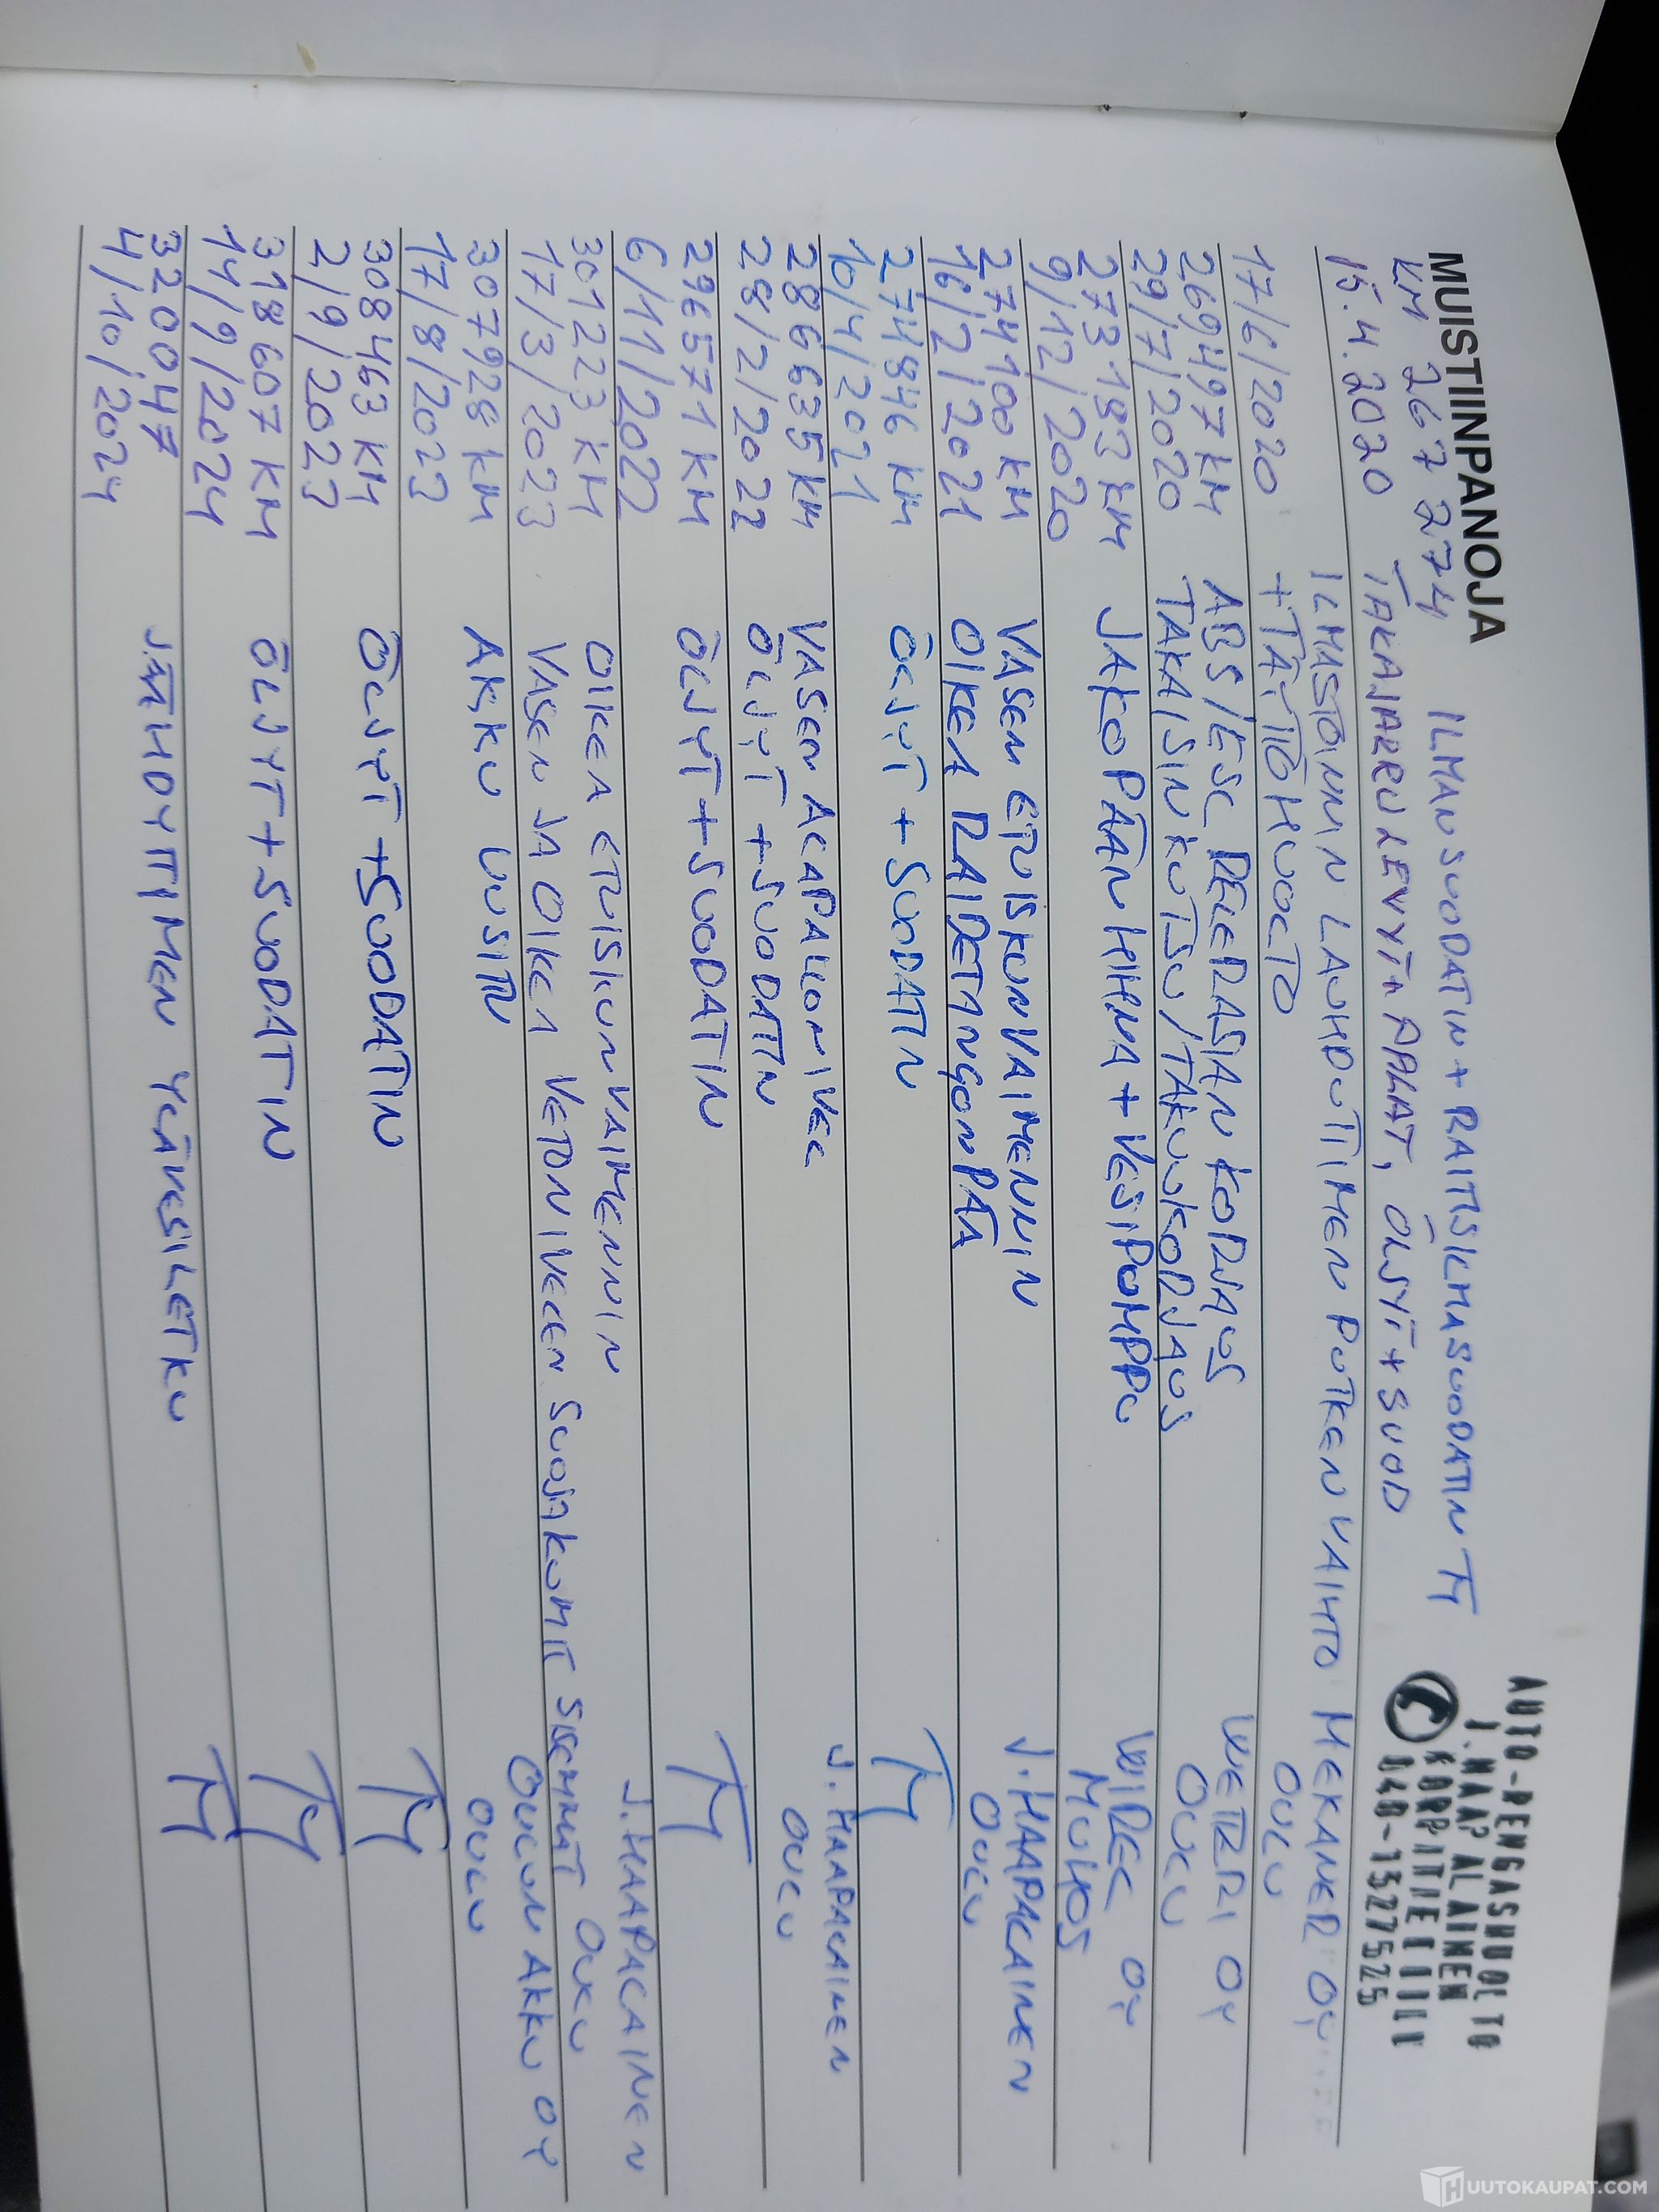 MUISTIINPANOJA
KM 267 274 ILMANSUODATIN + RAITISILMASUODATIN TM
15.4.2020 TAKAJARRULEVYT + PALAT, ÖLJYT + SUOD
AUTO-RENGASHUOLTO
J. HAAPALAINEN
040-1527525
ILMASTOINNIN LAUHDUTTIMEN PUTKEN VAIHTO MEKANER OY
17/6/2020 + TÄYTTÖHUOLTO OULU
269497 KM ABS/ESC RELERASIAN KORJAUS WETRI OY
29/7/2020 TAKAISINKUTSU/TAKUUKORJAUS OULU
273193 KM JAKOPÄÄN HIHNA + VESIPUMPPU WIREC OY
9/12/2020 MUHOS
274100 KM VASEN ETUISKUNVAIMENNIN J. HAAPALAINEN
16/2/2021 OIKEA RAIDETANGONPÄÄ OULU
274846 KM ÖLJYT + SUODATIN TM
10/4/2021
286635 KM VASEN ALAPALLONIVEL J. HAAPALAINEN
28/2/2022 ÖLJYT + SUODATIN OULU
296571 KM ÖLJYT + SUODATIN TM
6/11/2022
301223 KM OIKEA ETUISKUNVAIMENNIN J. HAAPALAINEN
17/3/2023 VASEN JA OIKEA VETONIVELEN SUOJAKUMIT SISEMMÄT OULU
307928 KM AKKU UUSITTU OULUN AKKU OY
17/8/2023 OULU
308463 KM ÖLJYT + SUODATIN TM
2/9/2023
318607 KM ÖLJYT + SUODATIN TM
14/9/2024
320047 JÄÄHDYTTIMEN YLÄVESILETKU TM
4/10/2024
HUUTOKAUPAT.COM